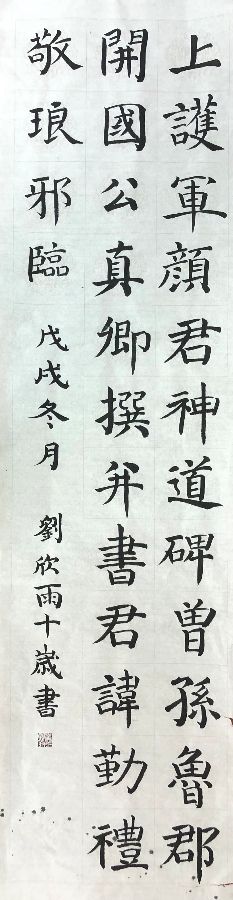 上護軍顔君神道碑曽孫魯郡
開國公真卿撰并書君諱勤禮
敬琅邪臨 戊戌冬月 劉欣雨十歲書